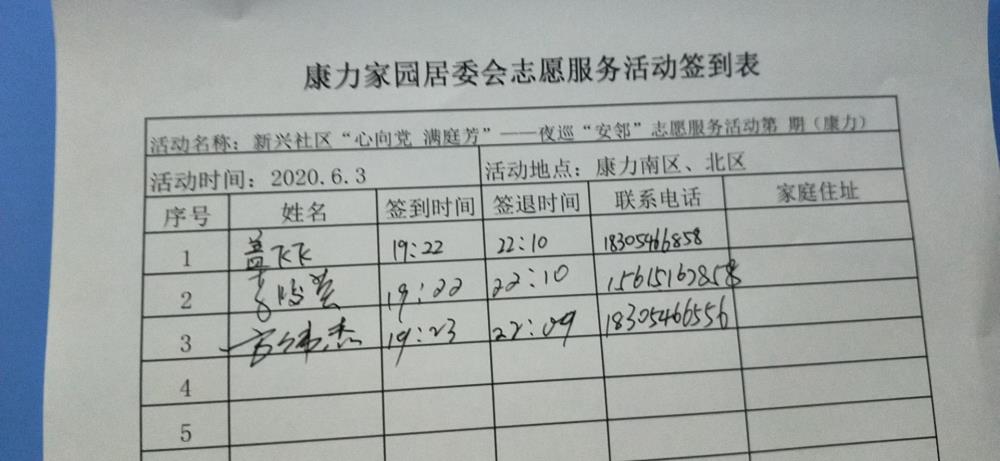 康力家园居委会志愿服务活动签到表
活动名称：新兴社区“心向党 满庭芳”——夜巡“安邻”志愿服务活动第 期（康力）
活动时间：2020.6.3 活动地点：康力南区、北区
序号 姓名 签到时间 签退时间 联系电话 家庭住址
1 盖飞飞 19:22 22:10 18305466858
2 19:22 22:10 15615162858
3 19:23 22:09 18305466556
4
5